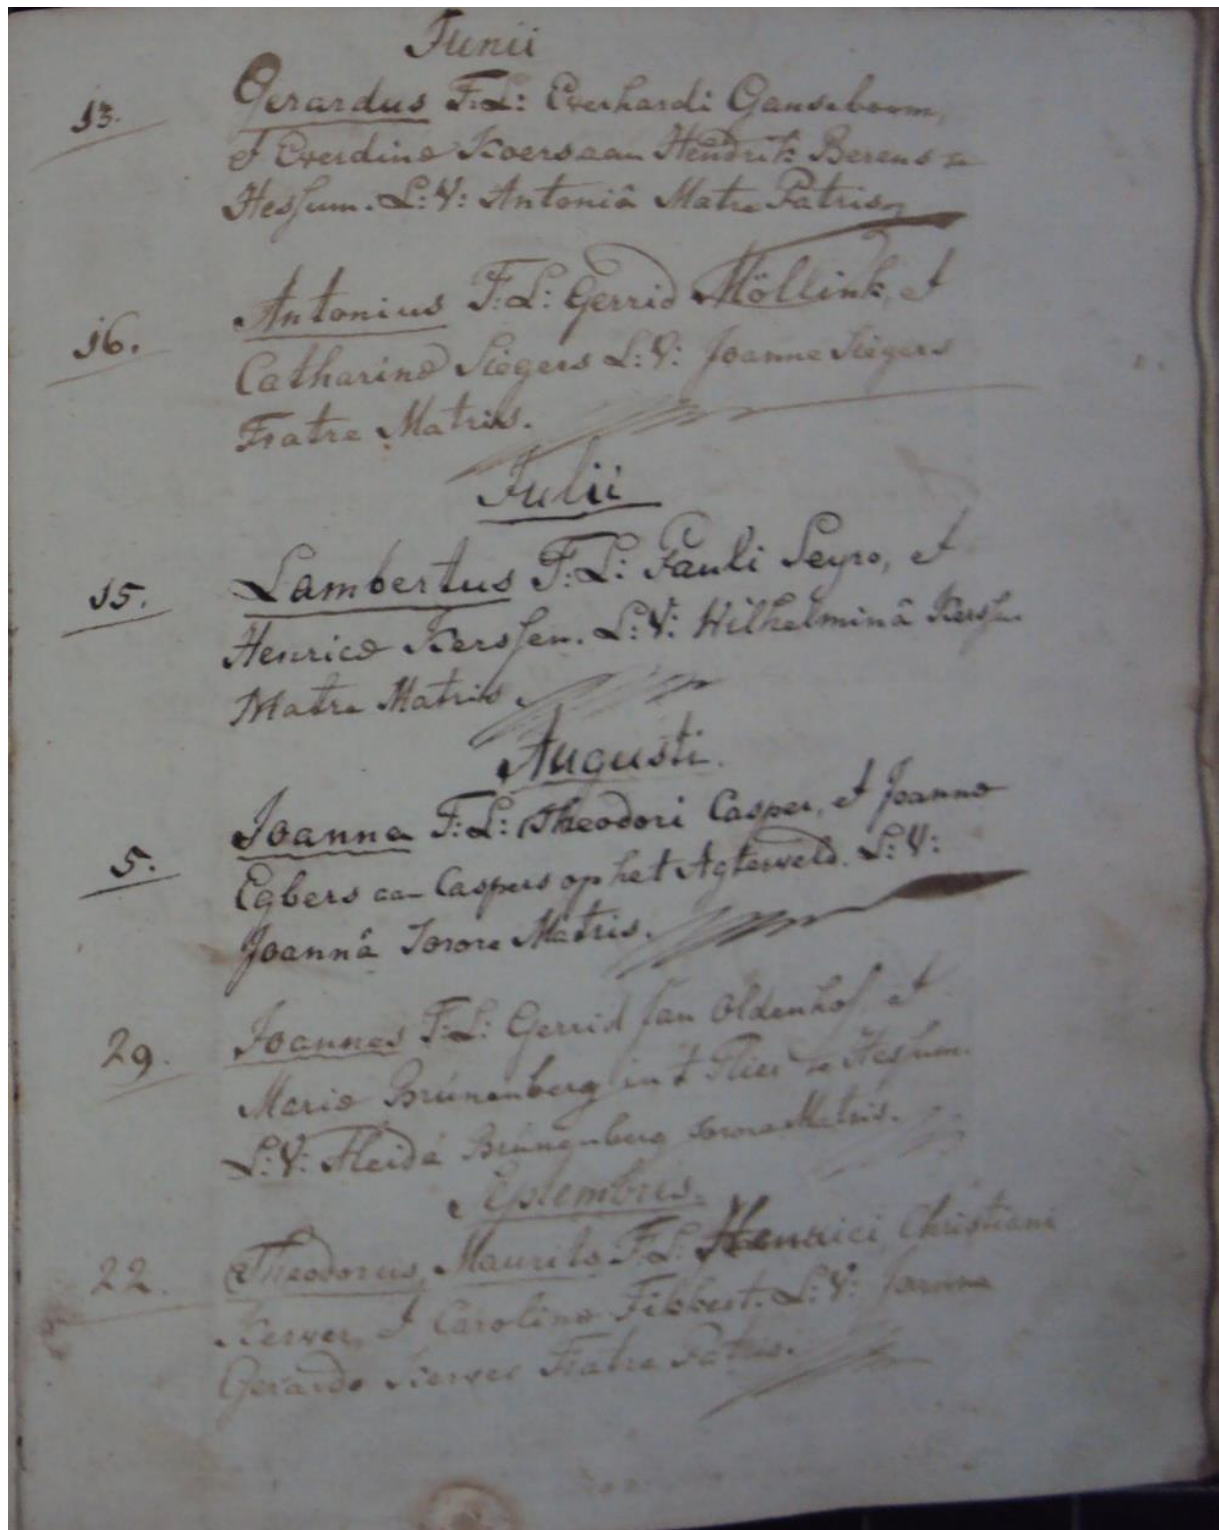 Junii
13. Gerardus F:L: Everhardi Ganseboom,
et Everdinæ Koers aan Hendrik Berens te
Hessum. L:V: Antoniâ Matre Patris
16. Antonius F:L: Gerrid Möllink, et
Catharinæ Siegers L:V: Joanne Siegers
Fratre Matris.
Julii
15. Lambertus F:L: Pauli Seyro, et
Henricæ Kerssen. L:V: Wilhelminâ Kerssen
Matre Matris.
Augusti.
5. Joanna F:L: Theodori Casper, et Joannæ
Egbers aan Caspers op het Agterveld. L:V:
Joannâ Sorore Matris.
29. Joannes F:L: Gerrid Jan Oldenhof et
Mariæ Brúnenberg in t Flier te Hessum.
L:V: Aleidâ Brúnenberg Sorore Matris.
Septembris.
22. Theodorus, Maurits F:L: Henrici Christiani
Kerver, et Carolinæ Fibbert. L:V:
Gerardo Kerver Fratre Patris.